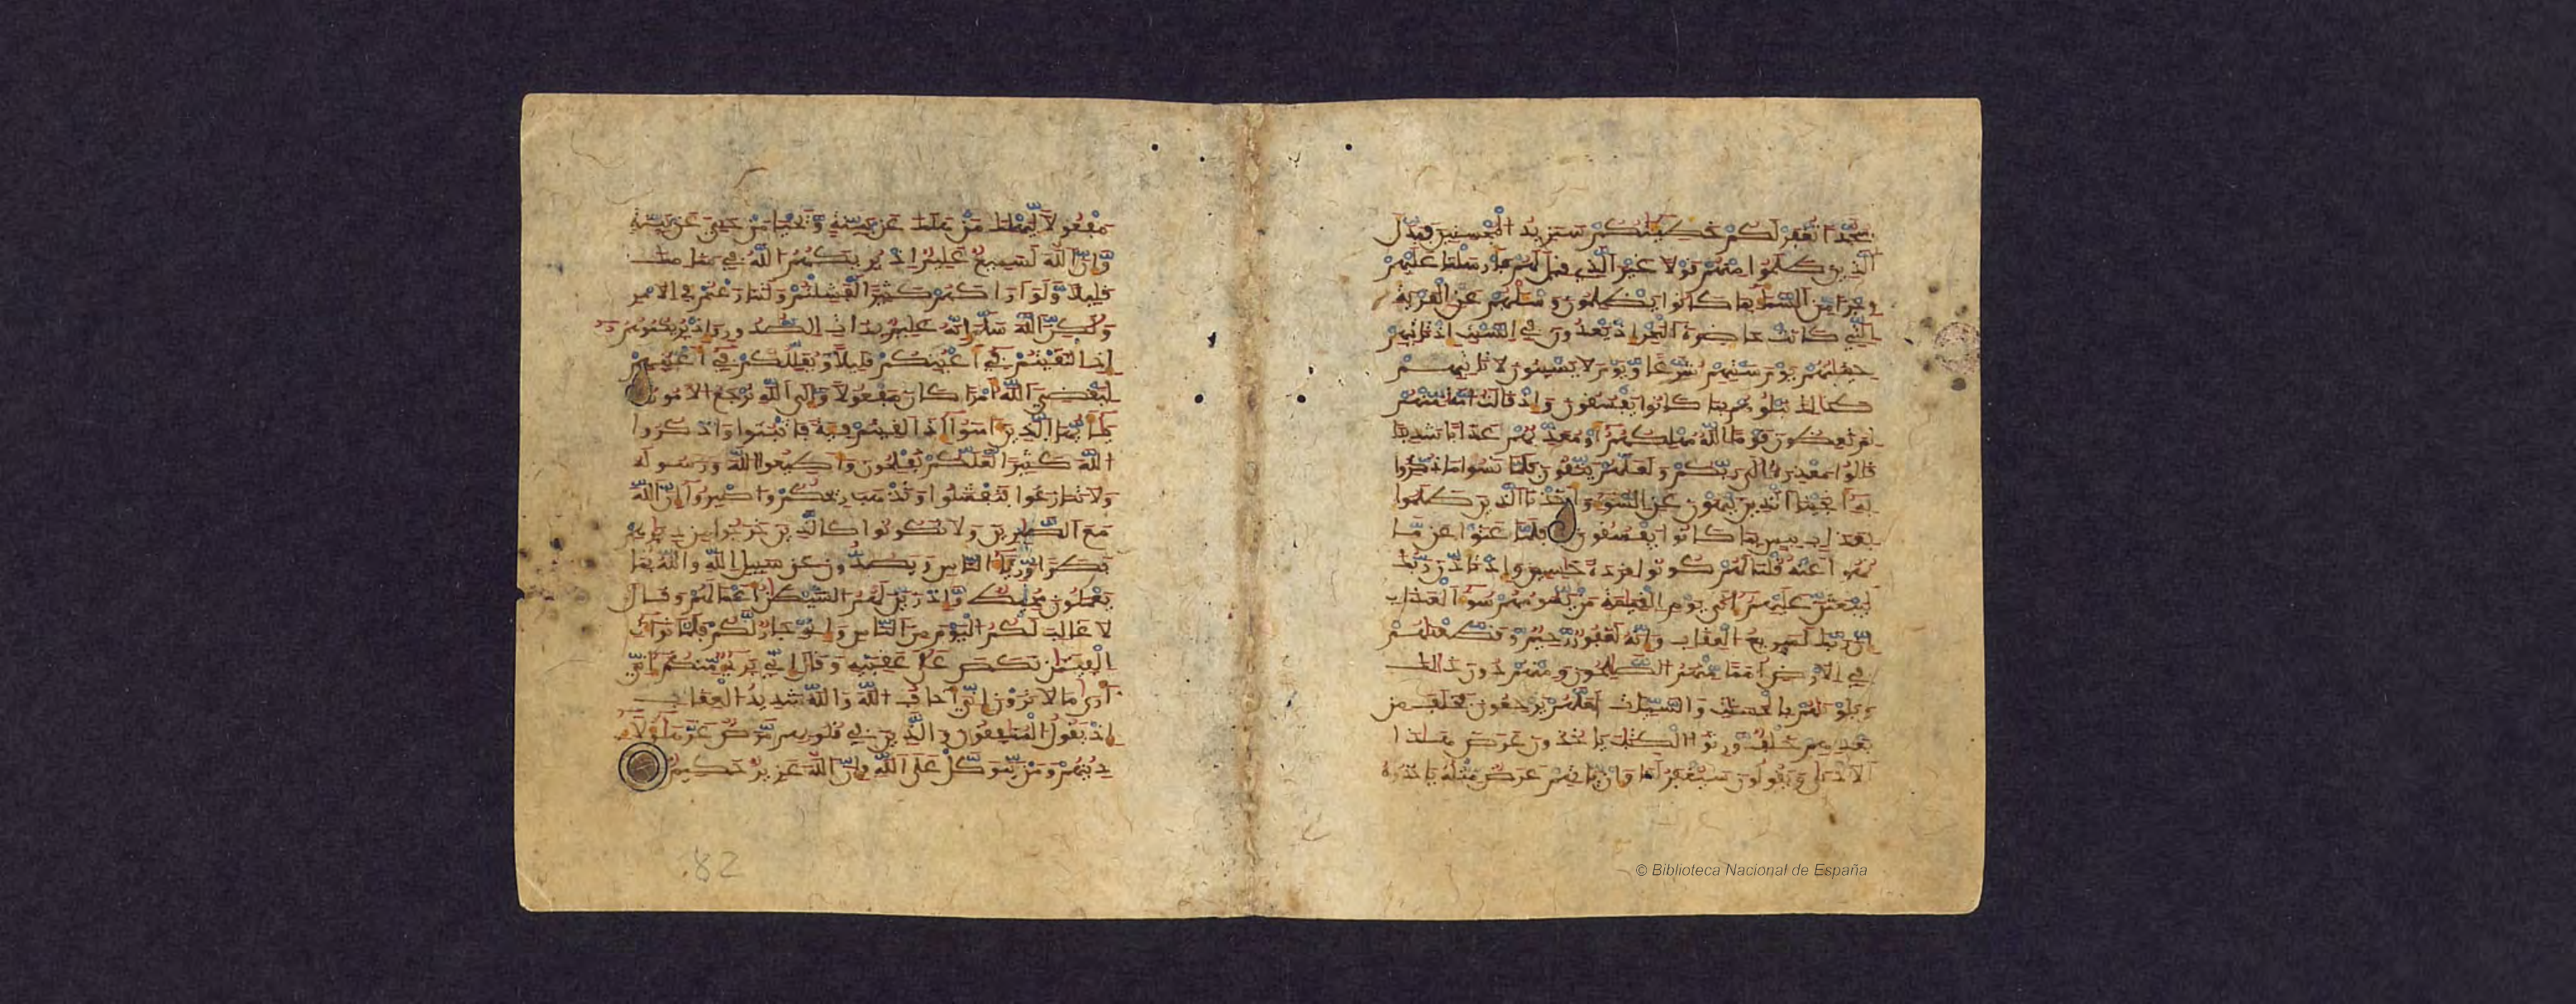 سجدا تغفر لكم خطيئتكم سنزيد المحسنين فبدل
الذين ظلموا منهم قولا غير الذي قيل لهم فأرسلنا عليهم
رجزا من السماء بما كانوا يظلمون وسئلهم عن القرية
التي كانت حاضرة البحر إذ يعدون في السبت إذ تأتيهم
حيتانهم يوم سبتهم شرعا ويوم لا يسبتون لا تأتيهم
كذلك نبلوهم بما كانوا يفسقون وإذ قالت أمة منهم
لم تعظون قوما الله مهلكهم أو معذبهم عذابا شديدا
قالوا معذرة إلى ربكم ولعلهم يتقون فلما نسوا ما ذكروا
به أنجينا الذين ينهون عن السوء وأخذنا الذين ظلموا
بعذاب بيس بما كانوا يفسقون فلما عتوا عن ما
نهوا عنه قلنا لهم كونوا قردة خسين وإذ تأذن ربك
ليبعثن عليهم إلى يوم القيمة من يسومهم سوء العذاب
إن ربك لسريع العقاب وإنه لغفور رحيم وقطعنهم
في الأرض أمما منهم الصلحون ومنهم دون ذلك
وبلونهم بالحسنت والسيئات لعلهم يرجعون فخلف من
بعدهم خلف ورثوا الكتب يأخذون عرض هذا
الأدنى ويقولون سيغفر لنا وإن يأتهم عرض مثله يأخذوه
© Biblioteca Nacional de España
مفعولا ليهلك من هلك عن بينة ويحيى من حيي عن بينة
وإن الله لسميع عليم إذ يريكهم الله في منامك
قليلا ولو أراكهم كثيرا لفشلتم ولتنازعتم في الأمر
ولكن الله سلم إنه عليم بذات الصدور وإذ يريكموهم
إذ التقيتم في أعينكم قليلا ويقللكم في أعينهم
ليقضي الله أمرا كان مفعولا وإلى الله ترجع الأمور
يأيها الذين آمنوا إذا لقيتم فئة فاثبتوا واذكروا
الله كثيرا لعلكم تفلحون وأطيعوا الله ورسوله
ولا تنازعوا فتفشلوا وتذهب ريحكم واصبروا إن الله
مع الصابرين ولا تكونوا كالذين خرجوا من ديارهم
بطرا ورئاء الناس ويصدون عن سبيل الله والله بما
يعملون محيط وإذ زين لهم الشيطن أعمالهم وقال
لا غالب لكم اليوم من الناس وإني جار لكم فلما تراءت
الفئتان نكص على عقبيه وقال إني بريء منكم إني
أرى ما لا ترون إني أخاف الله والله شديد العقاب
إذ يقول المنافقون والذين في قلوبهم مرض غر هؤلاء
دينهم ومن يتوكل على الله فإن الله عزيز حكيم
82